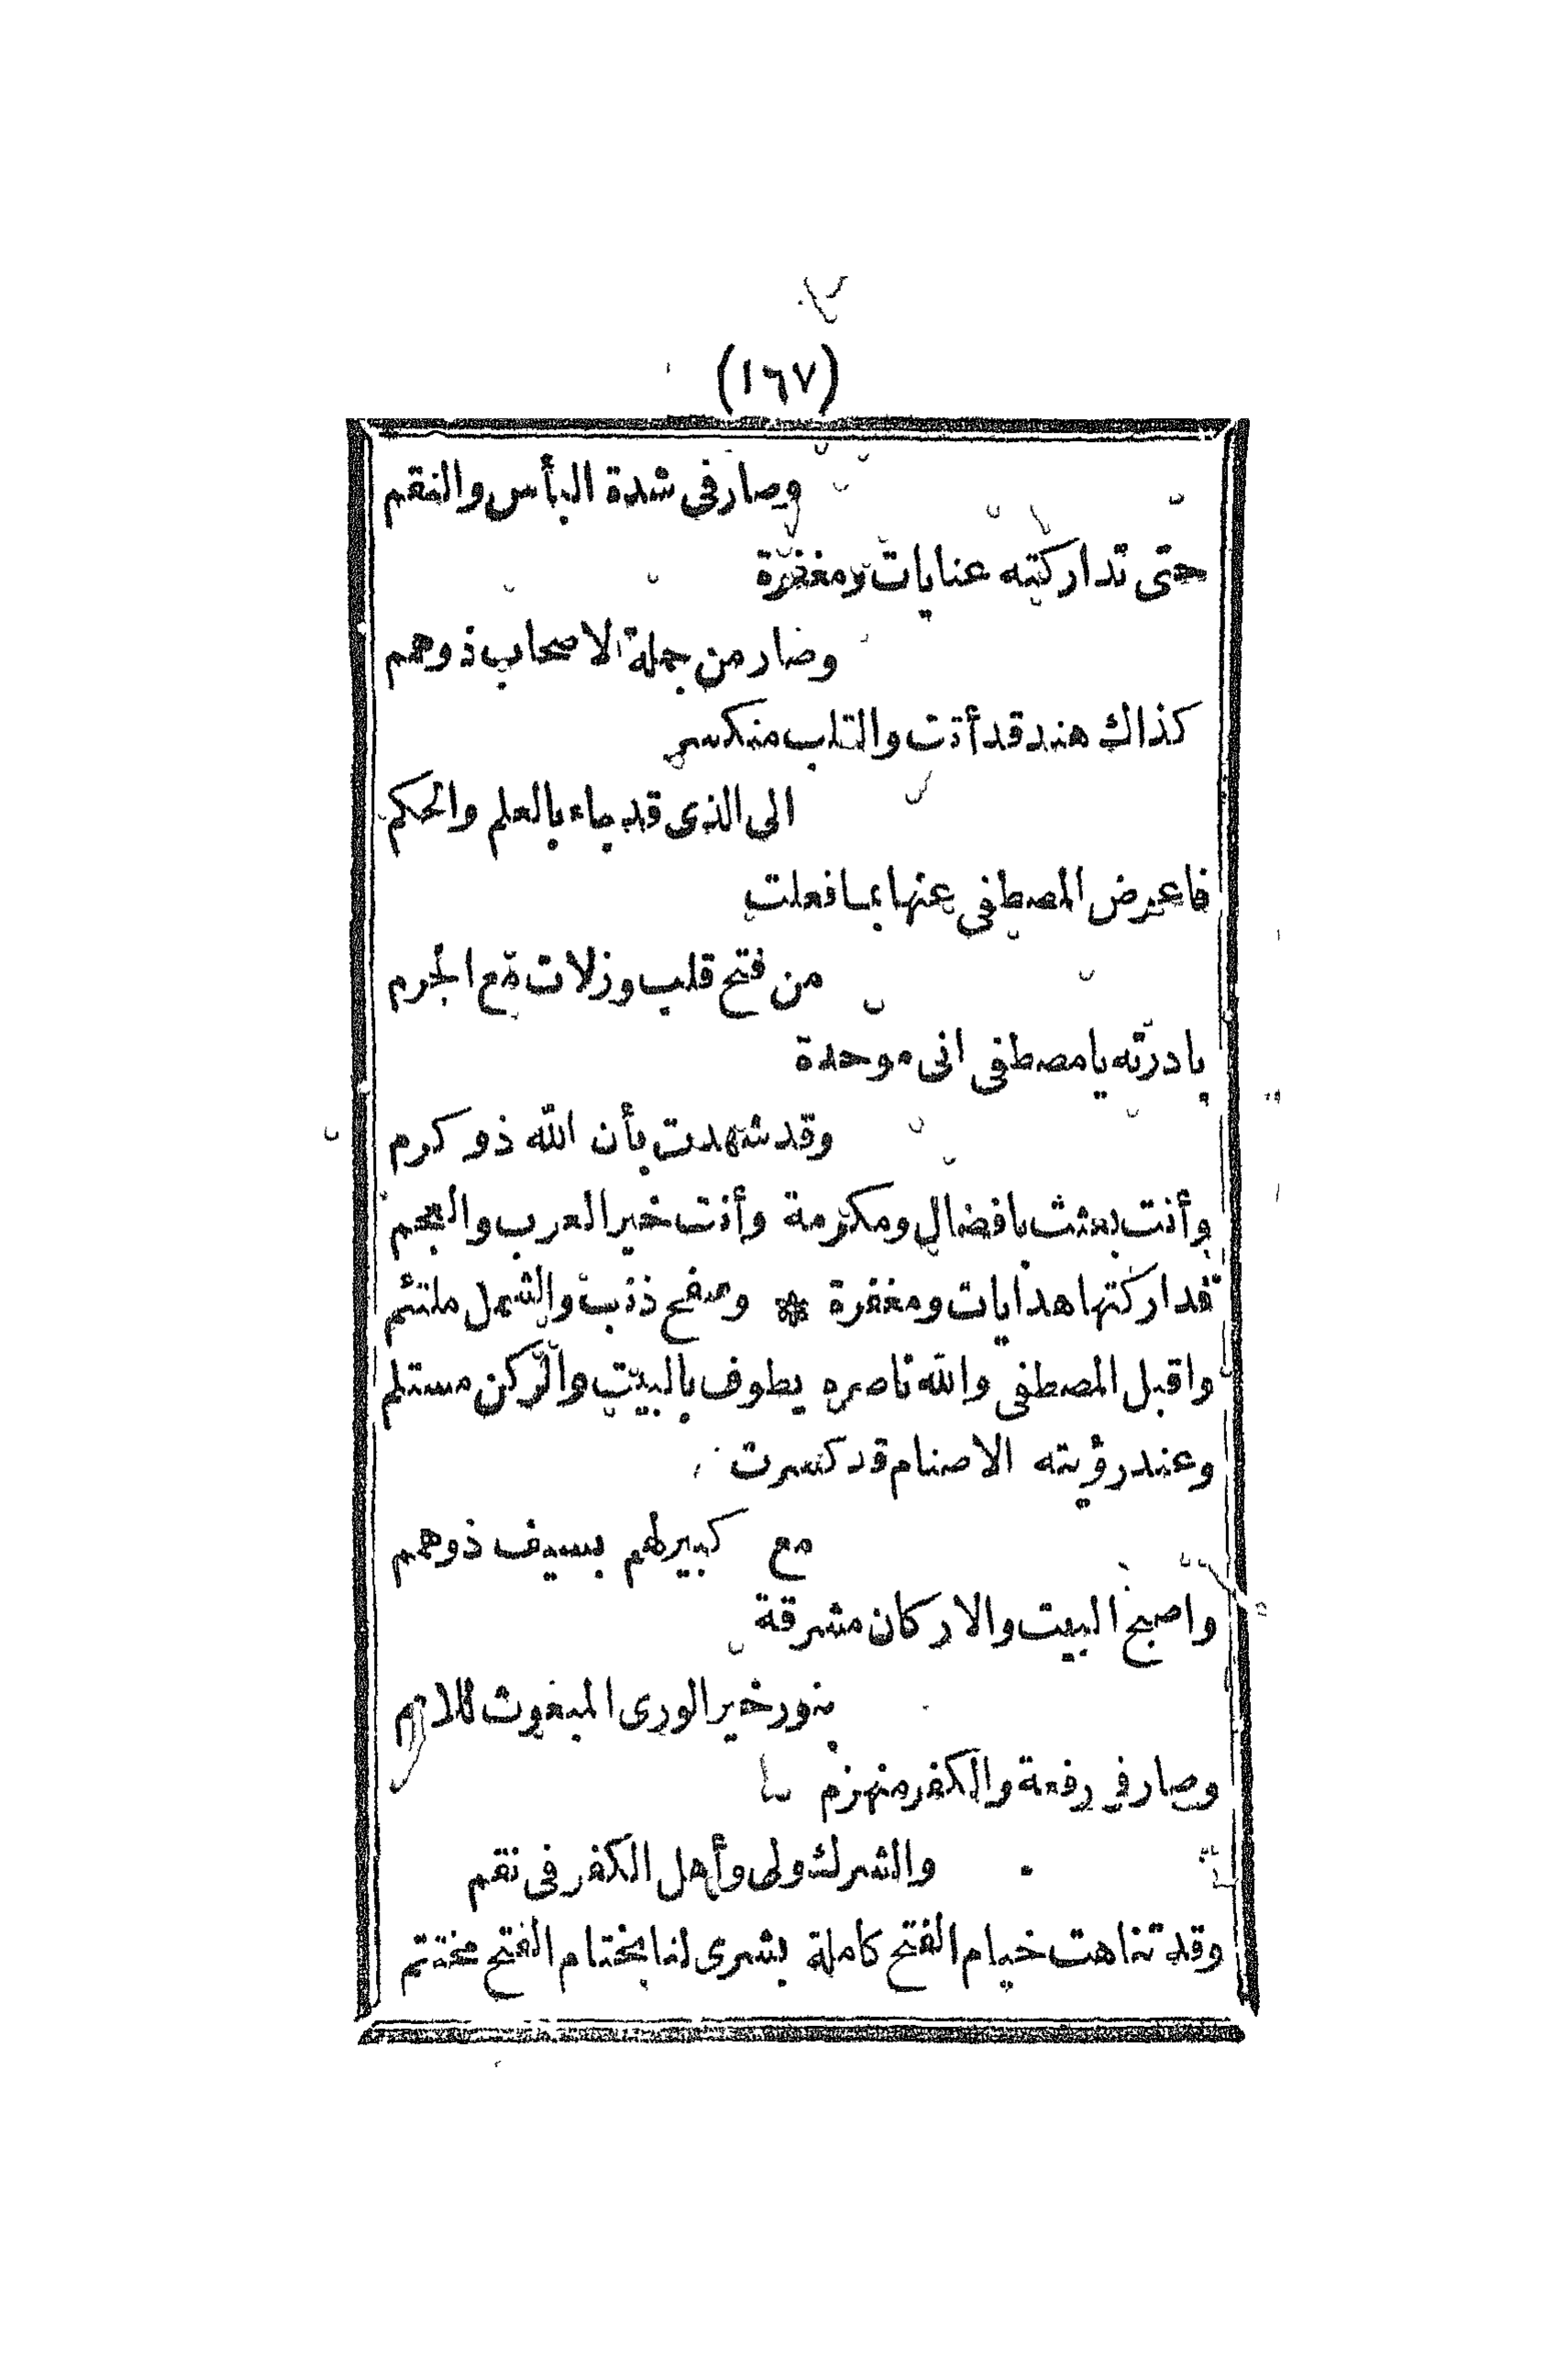 (١٦٧)
وصار فى شدة البأس والنقم
حتى تداركته عنايات ومغفرة
وصار من جملة الاصحاب ذوهمم
كذاك هند قد أتت والقلب منكسر
الى الذى قد جاء بالعلم والحكم
فاعرض المصطفى عنها بما فعلت
من فتح قلب وزلات مع الجرم
بادرته يا مصطفى انى موحدة
وقد شهدت بأن الله ذو كرم
وأنت بعثت بافضال ومكرمة وأنت خير العرب والعجم
فداركتها هدايات ومغفرة * وصفح ذنب والشمل ملتئم
واقبل المصطفى والله ناصره يطوف بالبيت والركن مستلم
وعند رؤيته الاصنام قد كسرت
مع كبيرهم بسيف ذوهمم
واصبح البيت والاركان مشرقة
بنور خير الورى المبعوث للامم
وصار فى رفعة والكفر منهزم
والشرك ولى وأهل الكفر فى نقم
وقد تناهت خيام الفتح كاملة بشرى لنا بختام الفتح مختتم